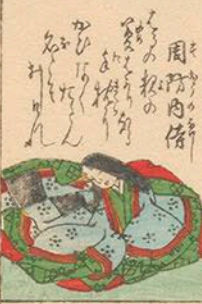 周防内侍
はるの夜の
夢ばかりなる
手枕に
かひなく
たゝん
名こそ
をしけれ